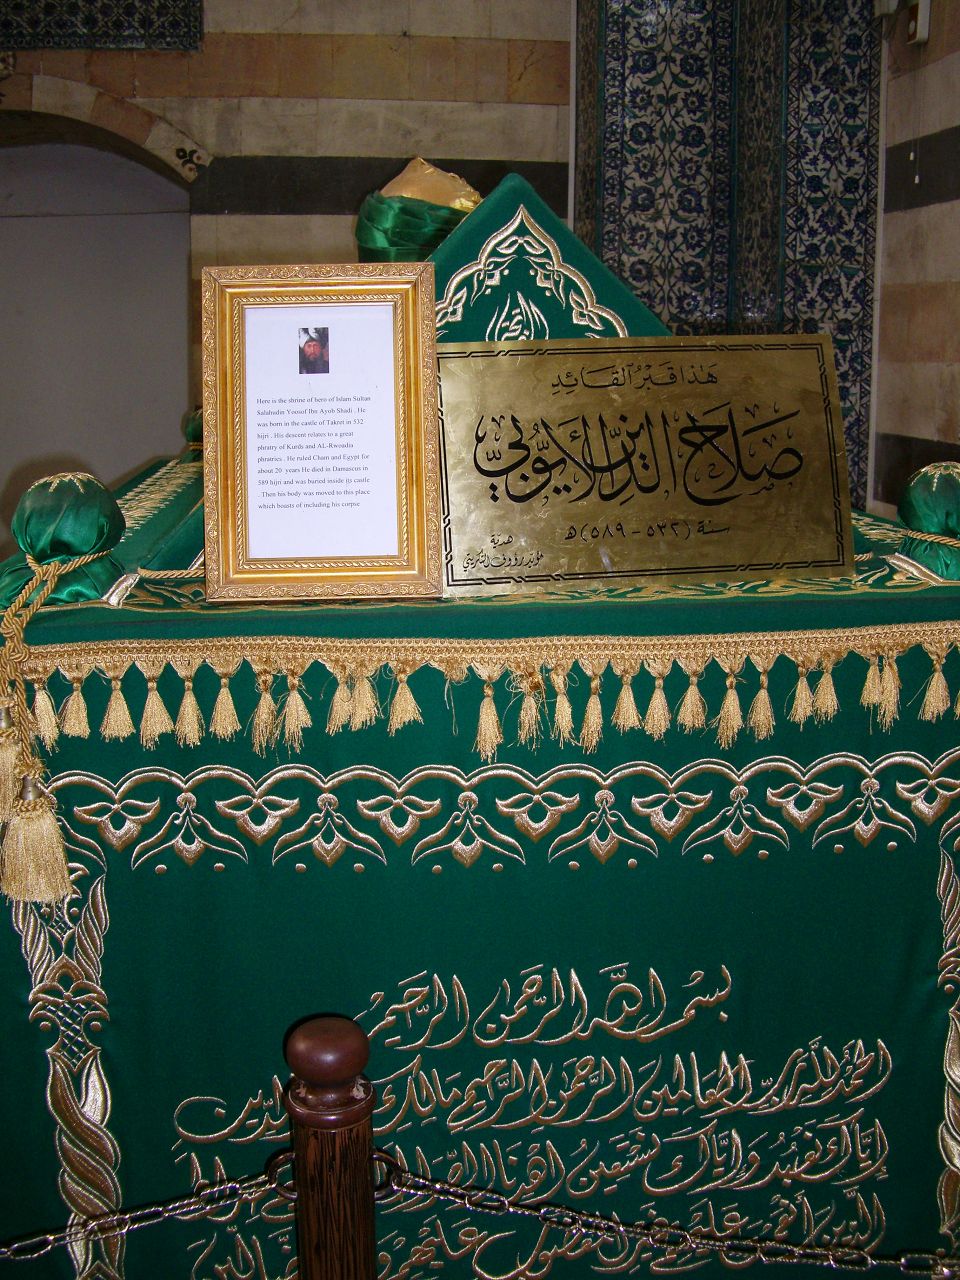 Here is the shrine of hero of Islam Sultan
Salahudin Yoosof Ibn Ayob Shadi . He
was born in the castle of Takret in 532
hijri . His descent relates to a great
phratry of Kurds and AL-Rwadia
phratries . He ruled Cham and Egypt for
about 20 years He died in Damascus in
589 hijri and was buried inside its castle
. Then his body was moved to this place
which boasts of including his corpse
هذا قبر القائد
صلاح الدين الأيوبي
سنة (٥٣٢ - ٥٨٩) هـ
هدية
مؤيد رؤوف التكريتي
بسم الله الرحمن الرحيم
الحمد لله رب العالمين الرحمن الرحيم مالك الدين
إياك نعبد وإياك نستعين اهدنا الصراط
الذين أنعمت عليهم غير المغضوب عليهم ولا الضالين